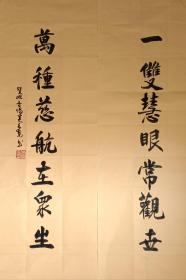 一雙慧眼常觀世
萬種慈航在衆生